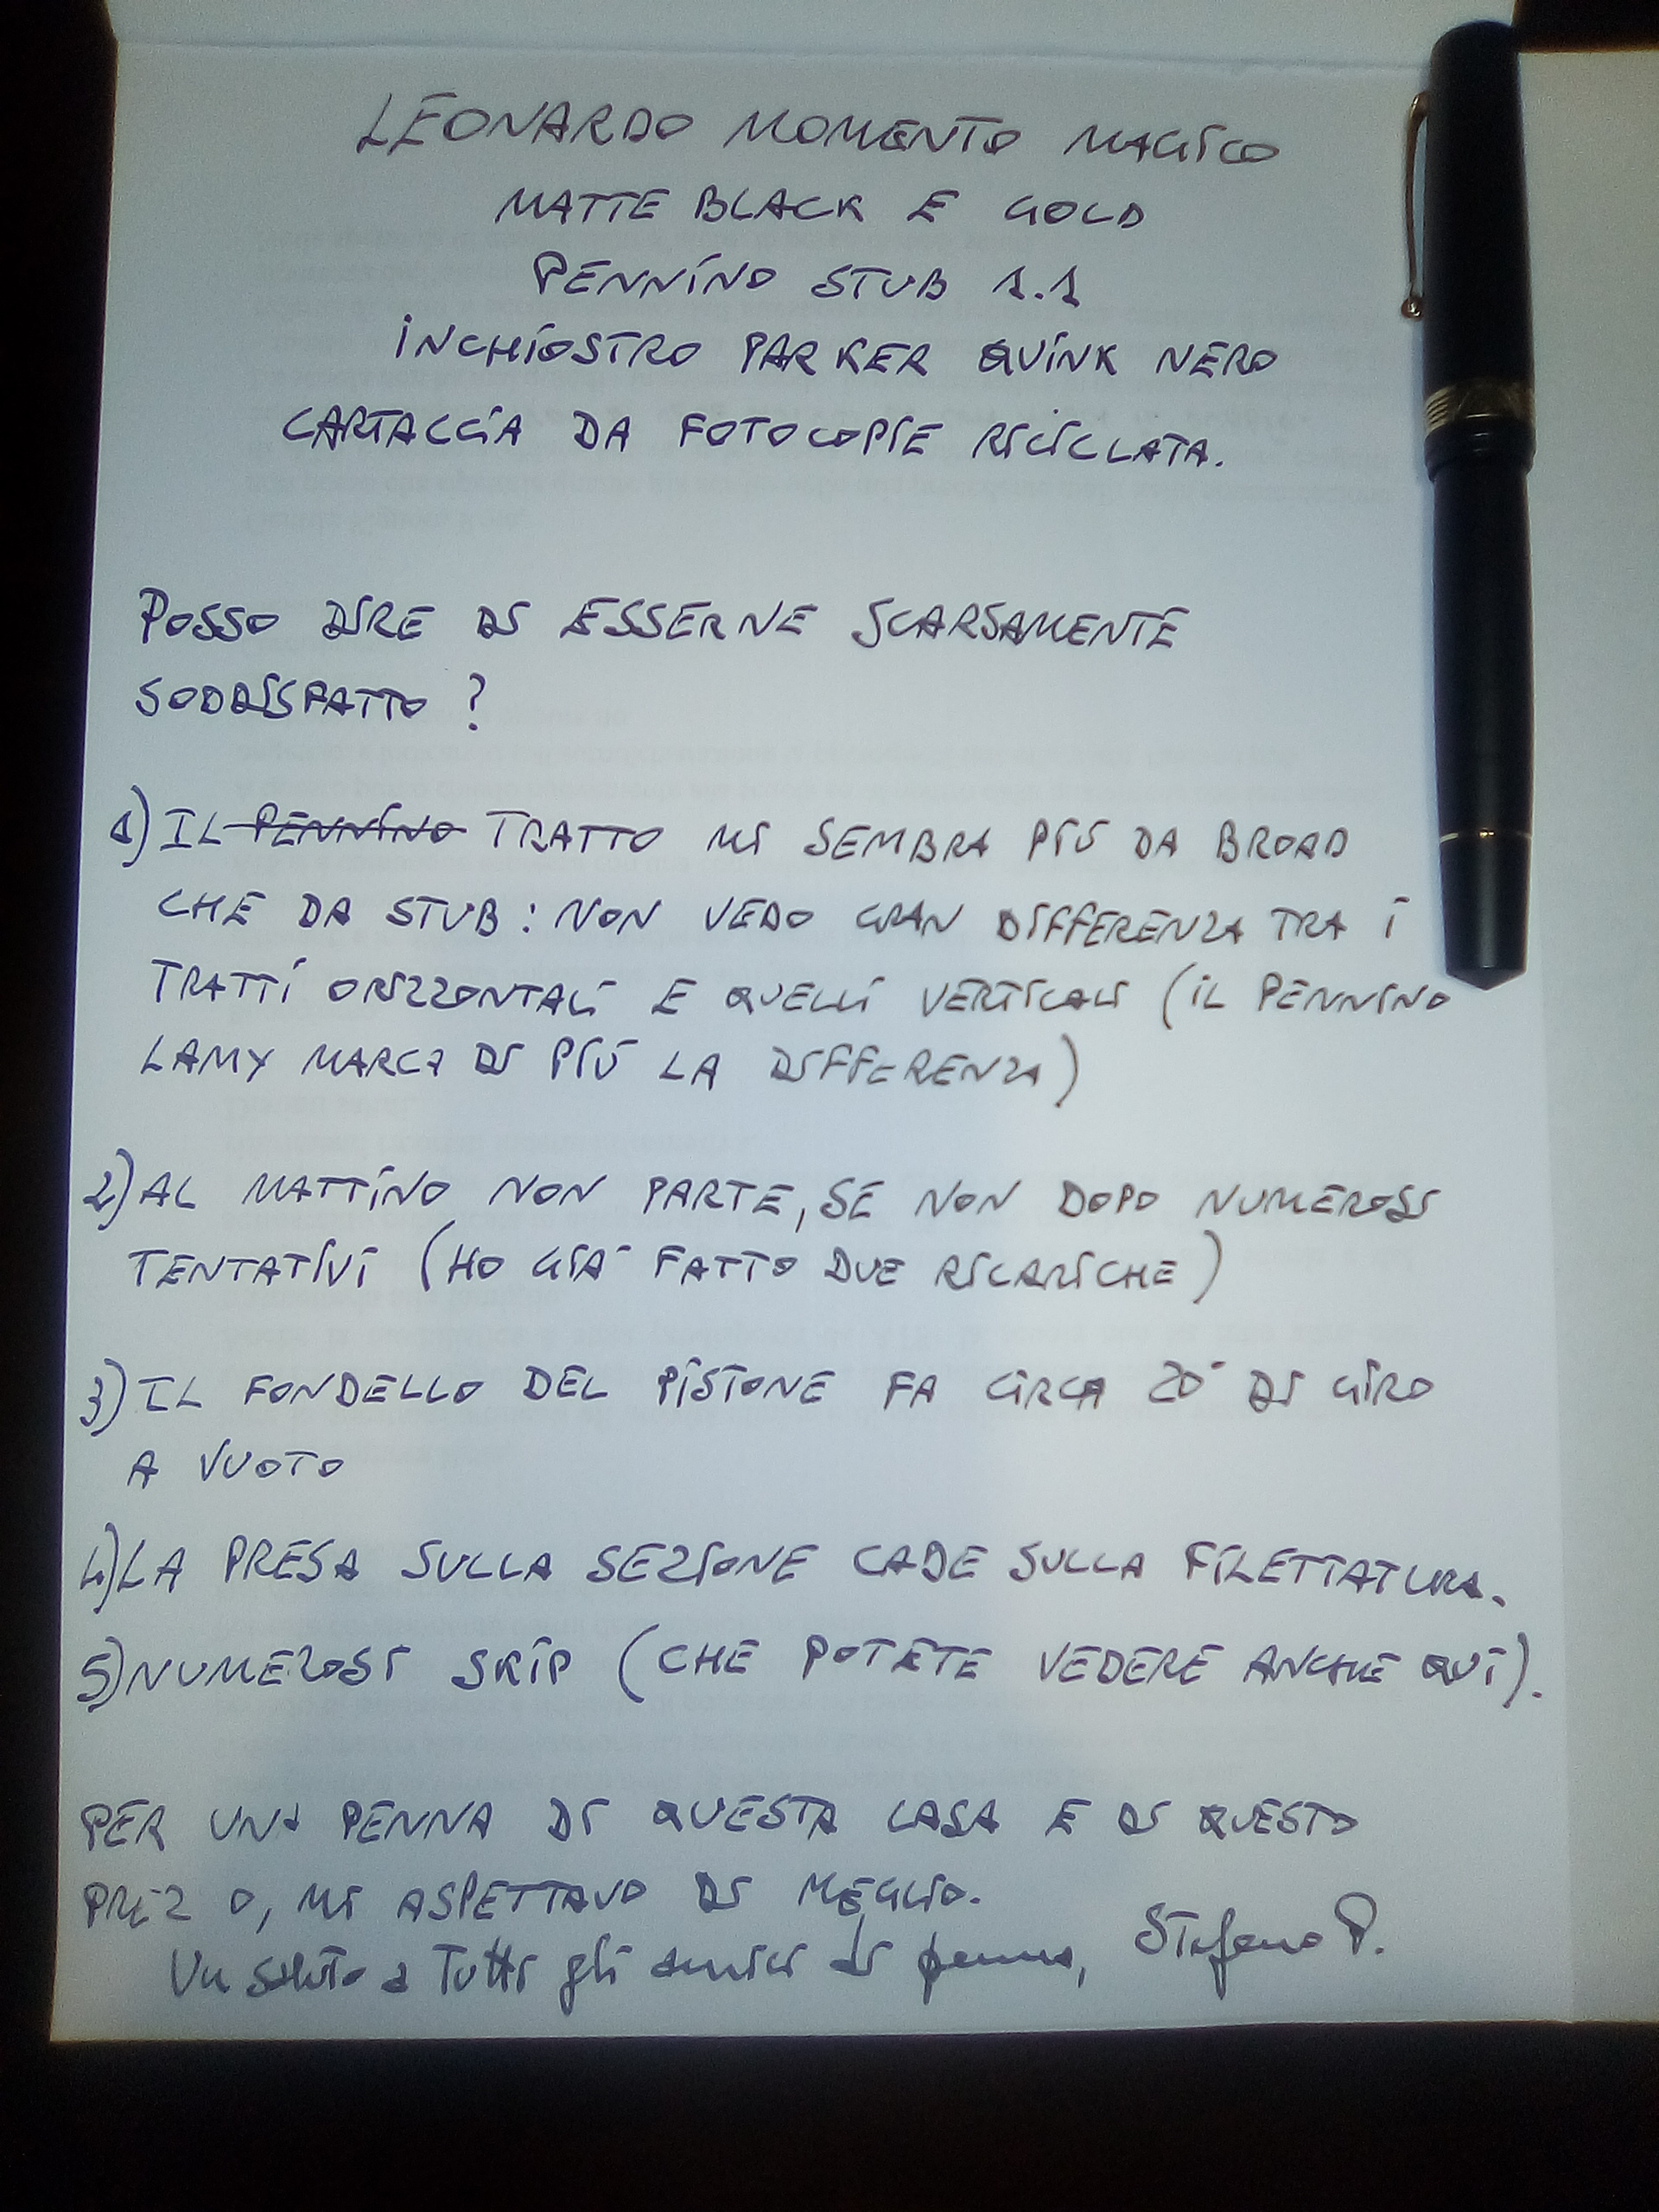 LEONARDO MOMENTO MAGICO
MATTE BLACK E GOLD
PENNINO STUB 1.1
INCHIOSTRO PARKER QUINK NERO
CARTACCIA DA FOTOCOPIE RICICLATA.
POSSO DIRE DI ESSERNE SCARSAMENTE
SODDISFATTO ?
1) IL PENNINO TRATTO MI SEMBRA PIÙ DA BROAD
CHE DA STUB : NON VEDO GRAN DIFFERENZA TRA I
TRATTI ORIZZONTALI E QUELLI VERTICALI (IL PENNINO
LAMY MARCA DI PIÙ LA DIFFERENZA)
2) AL MATTINO NON PARTE, SE NON DOPO NUMEROSI
TENTATIVI (HO GIÀ FATTO DUE RICARICHE)
3) IL FONDELLO DEL PISTONE FA CIRCA 20° DI GIRO
A VUOTO
4) LA PRESA SULLA SEZIONE CADE SULLA FILETTATURA.
5) NUMEROSI SKIP (CHE POTETE VEDERE ANCHE QUI).
PER UNA PENNA DI QUESTA CASA E DI QUESTO
PREZ O, MI ASPETTAVO DI MEGLIO.
Un saluto a tutti gli amici di penna, Stefano P.